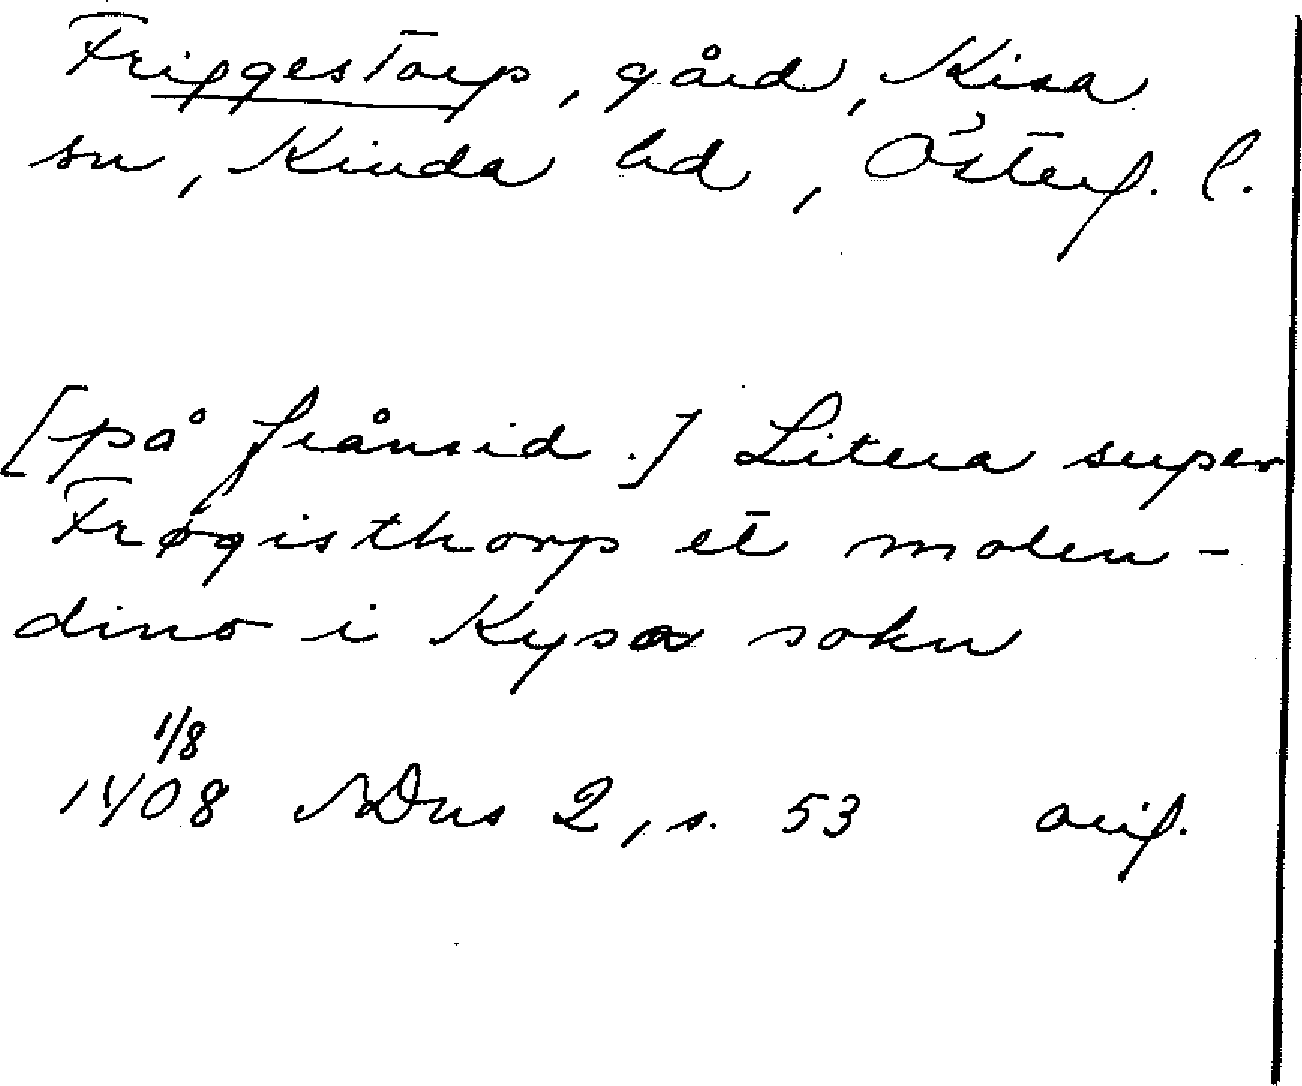 Friggestorp, gård, Kisa
sn, Kinda hd, Österg. l.
[på frånsid.] Litera super
Frøgisthorp et molen-
dino i Kysa sokn
1/8
1408 NDns 2, s. 53 orig.